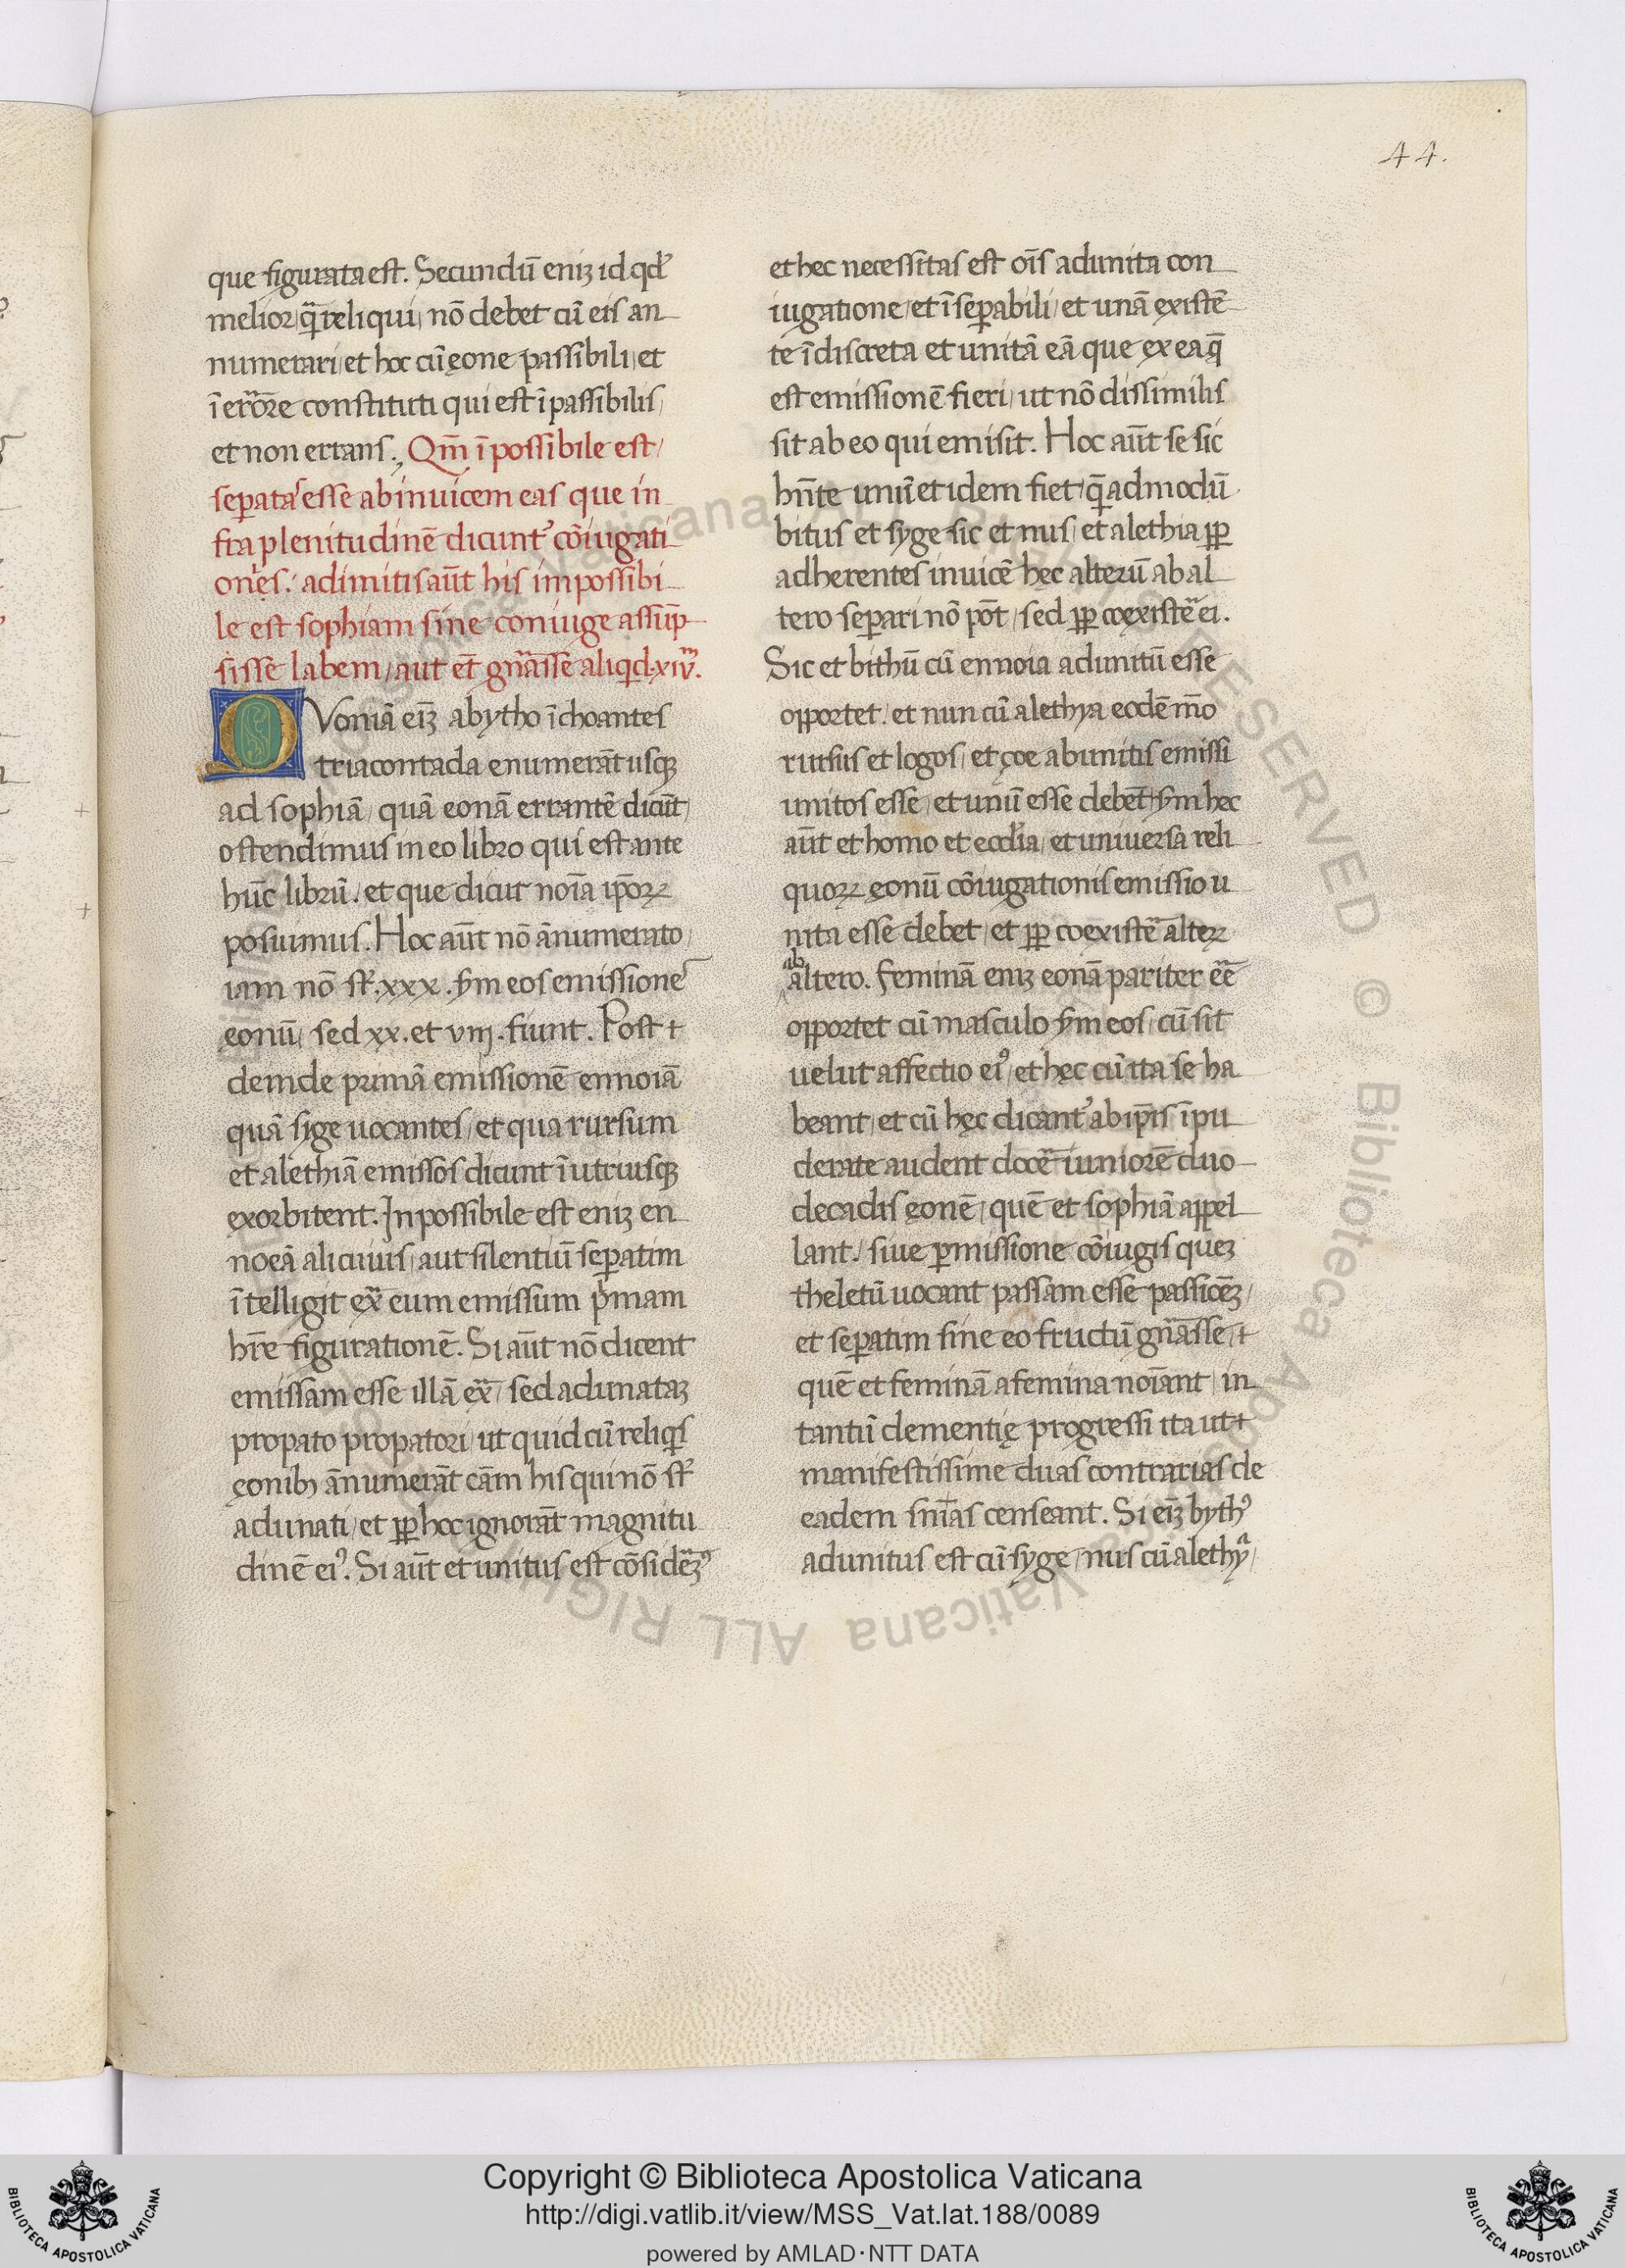 44.
que figurata est. Secundū eniꝫ id qď
melior q̄ reliqui, nō debet cū eis an
numerari, et hoc cū ęone passibili, et
ī errōre constituti qui est īpassibilis,
et non errans. Qm̄ īpossibile est,
sepatas esse abinuicem eas que in
fra plenitudinē dicunt᷒ cōiugati
ones. adimitis aūt his impossibi
le est sophiam sine coniuge assūp
sisse labem, aut et̄ gn̄asse aliqd. xiv.
QVoniā eīꝫ abytho īchoantes
triacontada enumerāt usqꝫ
ad sophiā, quā eonā errantē dicūt,
ostendimus in eo libro qui est ante
hūc librū. et que dicūt noīa ip̄oꝝ
posuimus. Hoc aūt nō ānumerato,
iam nō st̄. xxx. s̄m eos emissiones
ęonū, sed xx. et viij. fiunt. Post +
deinde primā emissionē ennoiā
quā sige uocantes, et qua rursum
et alethiā emissos dicunt ī utrusqꝫ
exorbitent. Inpossibile est eniꝫ en
noeā alicuius, aut silentiū sepatim
ītelligit ex̄ eum emissum p̄mam
hr̄e figurationē. Si aūt nō dicent
emissam esse illā ex̄, sed adunataꝫ
propato propatori, ut quid cū reliqs
ęonibꝫ ānumerāt cām his qui nō st̄
adunati, et ꝑꝑ hoc ignorāt magnitu
dinē ei᷒. Si aūt et unitus est cōsidēꝫ᷒
et hec necessitas est oīs adunita con
iugatione, et īsepabili, et unā existē
te īdiscreta et unitā eā que ex ea q̄
est emissionē fieri, ut nō dissimilis
sit ab eo qui emisit. Hoc aūt se sic
hn̄te unū et idem fiet, q̄admodū
bitus et syge sic et nus, et alethia ꝑꝑ
adherentes inuicē hęc alterū ab al
tero separi nō pōt, sed ꝑꝑ coexistē ei.
Sic et bithū cū ennoia adunitū esse
opportet. et nun cū alethya eodē mō
rursus et logos, et çoe abunitis emissi
unitos esse, et unū esse debet, s̄m hec
aūt et homo et eccl̄ia, et uniuersa reli
quoꝝ ęonū cōiugationis emissio u
nita esse debet, et ꝑꝑ coexistē alteꝝ
ab altero. Feminā eniꝫ eonā pariter ēē
opportet cū masculo s̄m eos, cū sit
uelut affectio ei᷒, et hęc cū ita se ha
beant, et cū hęc dicant᷒ ab ip̄is īpu
derate audent docē iuniorē duo
decadis ęonē, quē et sophiā appel
lant. siue ꝑmissione cōiugis queꝫ
theletū uocant passam esse passiōēꝫ,
et sepatim sine eo fructū gn̄asse, +
quē et feminā a femina noīant, in
tantū dementię progressi ita ut +
manifestissime duas contrarias de
eadem sn̄ias censeant. Si eīꝫ byth᷒
adunitus est cū syge, nus cū alethya,
Copyright © Biblioteca Apostolica Vaticana
http://digi.vatlib.it/view/MSS_Vat.lat.188/0089
powered by AMLAD·NTT DATA
BIBLIOTECA APOSTOLICA VATICANA
BIBLIOTECA APOSTOLICA VATICANA